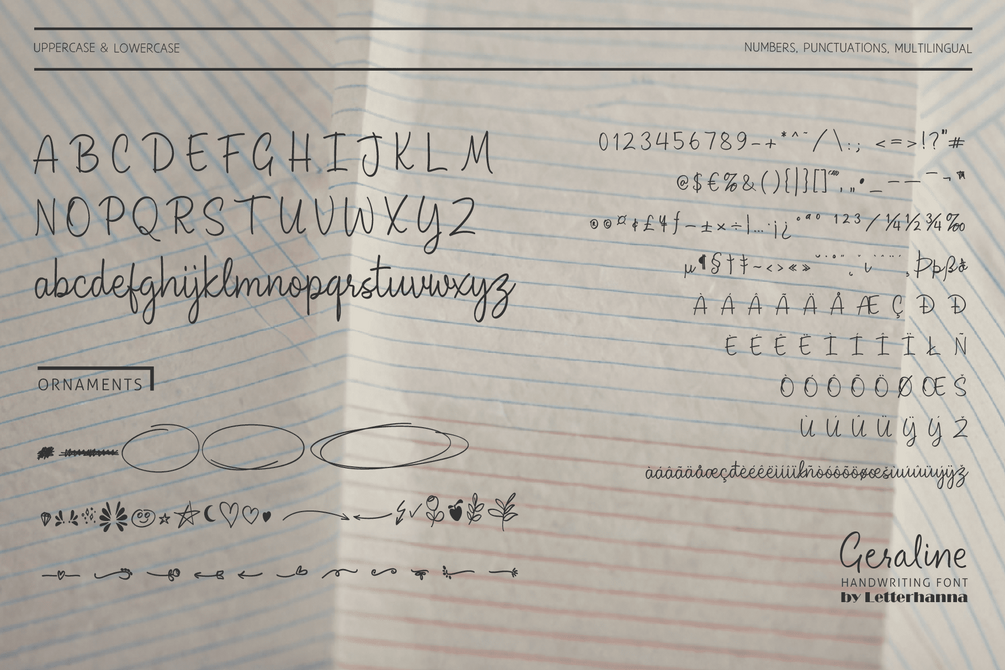 UPPERCASE & LOWERCASE
NUMBERS, PUNCTUATIONS, MULTILINGUAL
A B C D E F G H I J K L M
N O P Q R S T U V W X Y Z
abcdefghijklmnopqrstuvwxyz
ORNAMENTS
0 1 2 3 4 5 6 7 8 9 – + * ^ ~ / \ : ; < = > ! ? " #
@ $ € % & ( ) { | } [ ]
À Á Â Ã Ä Å Æ Ç Ð Đ
È É Ê Ë Ì Í Î Ï Ł Ñ
Ò Ó Ô Õ Ö Ø Œ Š
Ù Ú Û Ü Ý Ÿ Ž
Geraline
HANDWRITING FONT
by Letterhanna